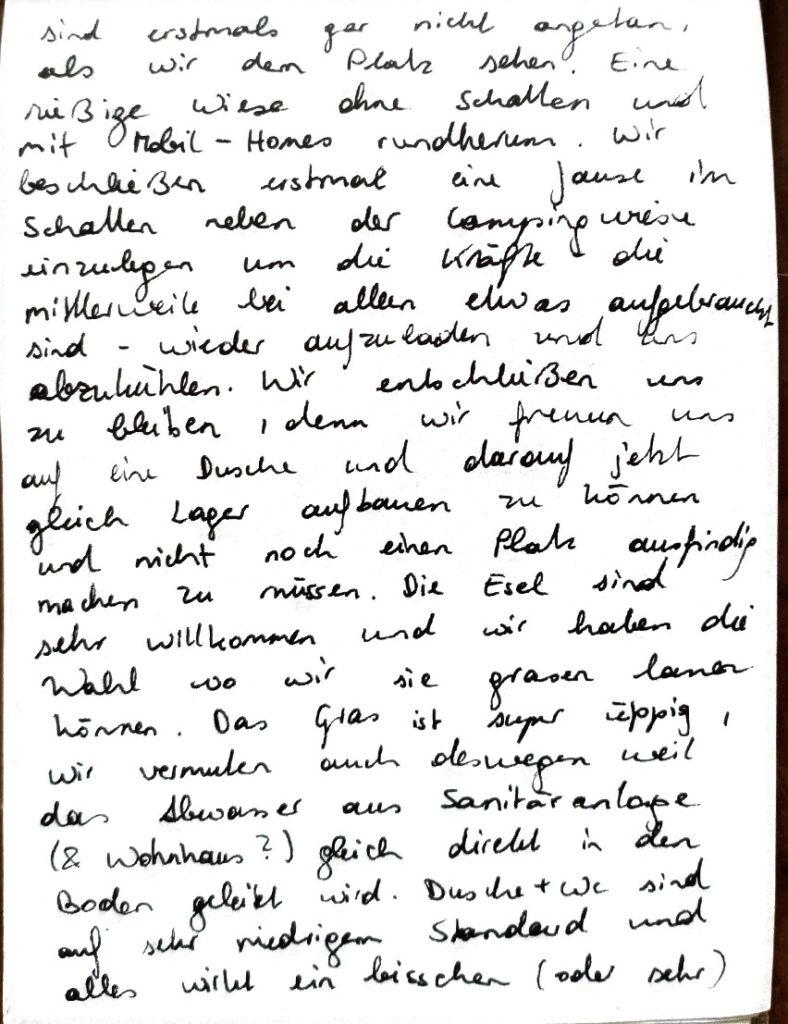 sind erstmals gar nicht angetan,
als wir den Platz sehen. Eine
rießige Wiese ohne Schatten und
mit Mobil-Homes rundherum. Wir
beschließen erstmal eine Jause im
Schatten neben der Campingwiese
einzulegen um die Kräfte - die
mittlerweile bei allen etwas aufgebraucht
sind - wieder aufzuladen und uns
abzukühlen. Wir entschließen uns
zu bleiben, denn wir freuen uns
auf eine Dusche und darauf jetzt
gleich Lager aufbauen zu können
und nicht noch einen Platz ausfindig
machen zu müssen. Die Esel sind
sehr willkommen und wir haben die
Wahl wo wir sie grasen lassen
können. Das Gras ist super üppig,
wir vermuten auch deswegen weil
das Abwasser aus Sanitäranlage
(& Wohnhaus?) gleich direkt in den
Boden geleitet wird. Dusche + WC sind
auf sehr niedrigem Standard und
alles wirkt ein bisschen (oder sehr)